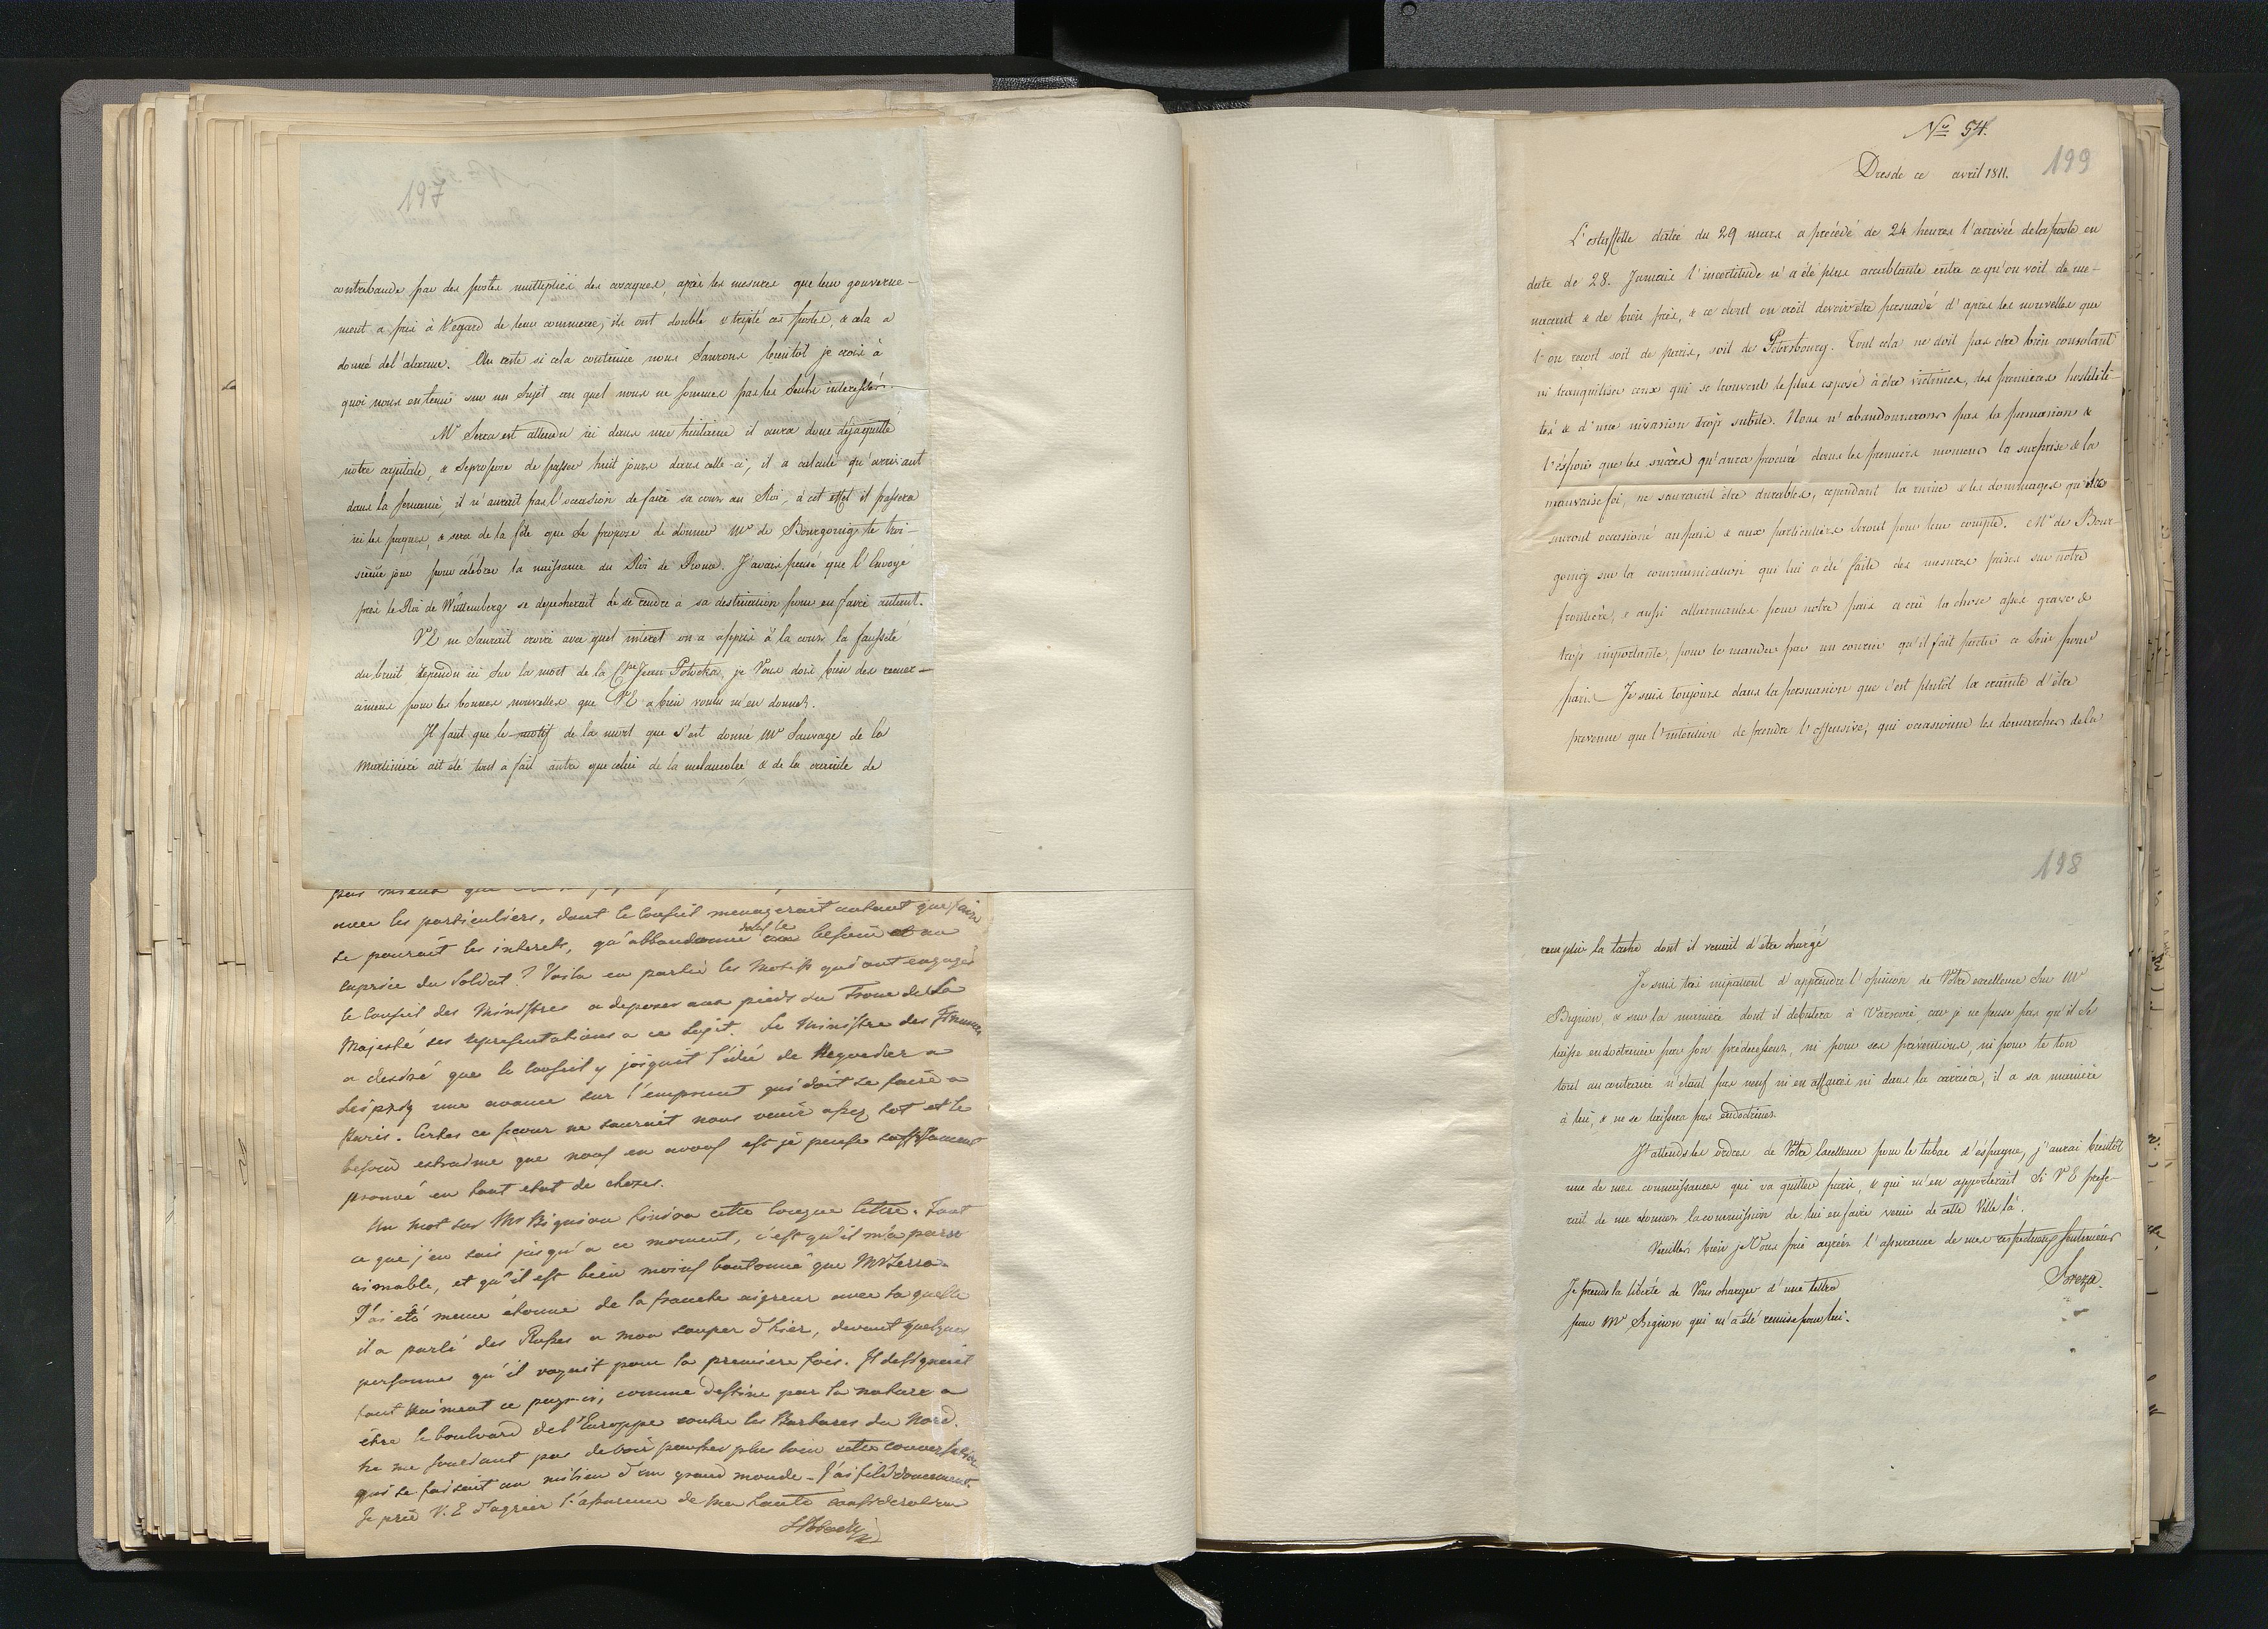 197
contrebande par des postes multipliés des cosaques, après les mesures que leur gouverne-
ment a pris à l'egard de leur commerce, ils ont doublé & triplé ces postes, & cela a
donné de l'alarme. Au reste si cela continue nous saurons bientôt je crois à
quoi nous en tenir sur un sujet au quel nous ne sommes pas les seuls interessés.
Mr Serra est attendu ici dans une huitaine il aura donc déja quitté
notre capitale, & se propose de passer huit jours dans celle-ci, il a calculé qu'arrivant
dans la semaine, il n'aurait pas l'occasion de faire sa cour au Roi, à cet effet il passera
ici les paques, & sera de la fête que se propose de donner Mr de Bourgoing le troi-
sième jour pour célébrer la naissance du Roi de Rome. J'avais pensé que l'Envoyé
près le Roi de Würtemberg se depecherait de se rendre à sa destination pour en faire autant.
VE ne saurait croire avec quel interet on a appris à la cour la fausseté
du bruit repandu ici sur la mort de la Ctsse Jean Potocka, je Vous dois bien des remer-
ciemens pour les bonnes nouvelles que VE a bien voulu m'en donner.
Il faut que le motif de la mort que s'est donné Mr Sauvage de la
Martiniere ait été tout à fait autre que celui de la melancolie & de la crainte de
avec les particuliers, dont le Conseil menagerait autant que faire
se pourait les interets, qu'abbandonné sans le besoin et au
caprice du Soldat? Voila en partie les Motifs qui ont engagés
le Conseil des Ministres a deposer aux pieds du Trone de Sa
Majesté ses representations a ce sujet. Le Ministre des Finances
a desiré que le Conseil y joignit l'idée de Negocier a
Leipzig une avance sur l'emprunt qui doit se faire a
Paris. Certes ce secour ne saurait nous venir assez tot et le
besoin extreme que nous en avons est je pense suffisament
prouvé en tout etat de choses.
Un mot sur Mr Bignion finira cette longue lettre. Tout
ce que j'en sais jusqu'a ce moment, c'est qu'il m'a paru
aimable, et qu'il est bien moins boutonné que Mr Serra.
J'ai été meme étonné de la franche aigreur avec la quelle
il a parlé des Russes a mon souper d'hier, devant quelques
personnes qu'il voyait pour la premiere fois. Il designait
tout uniment ce pays-ci, comme destiné par la nature a
être le boulevard de l'Europpe contre les Barbares du Nord.
Ne me souciant pas de voir pousser plus loin cette conversation
qui se faisait au milieu d'un grand monde - j'ai filé doucement.
Je prie V. E d'agréer l'assurance de ma haute consideration
No 54.
199
Dresde ce avril 1811.
L'estaffette datée du 29 mars a précédé de 24 heures l'arrivée de la poste en
date de 28. Jamais l'incertitude n'a été plus accablante entre ce qu'on voit de me-
nacant & de bien près, & ce dont on croit devoir etre persuadé d'après les nouvelles que
l'on reçoit soit de paris, soit de Petersbourg. Tout cela ne doit pas etre bien consolant
ni tranquiliser ceux qui se trouvent le plus exposé à etre victimes, des premieres hostilité-
tés & d'une invasion trop subite. Nous n'abandonnerons pas la persuasion &
l'éspoir que les succès qu'aura procuré dans les premiers momens la surprise & la
mauvaise foi, ne sauraient être durables, cependant la ruine & les dommages qu'elle
auront occasioné au pais & aux particuliers seront pour leur compte. Mr de Bour-
going sur la communication qui lui a été faite des mesures prises sur notre
frontière, & aussi allarmantes pour notre pais a crû la chose assés grave &
trop importante, pour le mander par un courier qu'il fait partir ce soir pour
paris. Je suis toujours dans la persuasion que c'est plutôt la crainte d'être
prevenue que l'intention de prendre l'offensive, qui occasionne les demarches de la
198
remplir la tache dont il venait d'être chargé
Je suis très impatient d'apprendre l'opinion de Votre excellence sur Mr
Bignon, & sur la manière dont il debutera à Varsovie, car je ne pense pas qu'il se
laisse endoctriner par son prédecesseur, ni pour ses préventions, ni pour le ton
tout au contraire n'etant pas neuf ni en affaires ni dans la carrière, il a sa manière
à lui, & ne se laissera pas endoctriner.
J'attends les ordres de Votre Excellence pour le tabac d'éspagne, j'aurai bientôt
une de mes connaissances qui va quitter paris, & qui m'en apporterait si VE prefe-
rait de me donner la commission de lui en faire venir de cette Ville là.
Veuilles bien je Vous prie agréer l'assurance de mes respectueux sentimens
Breza.
Je prends la liberté de Vous charger d'une lettre
pour Mr Bignon qui m'a été remise pour lui.